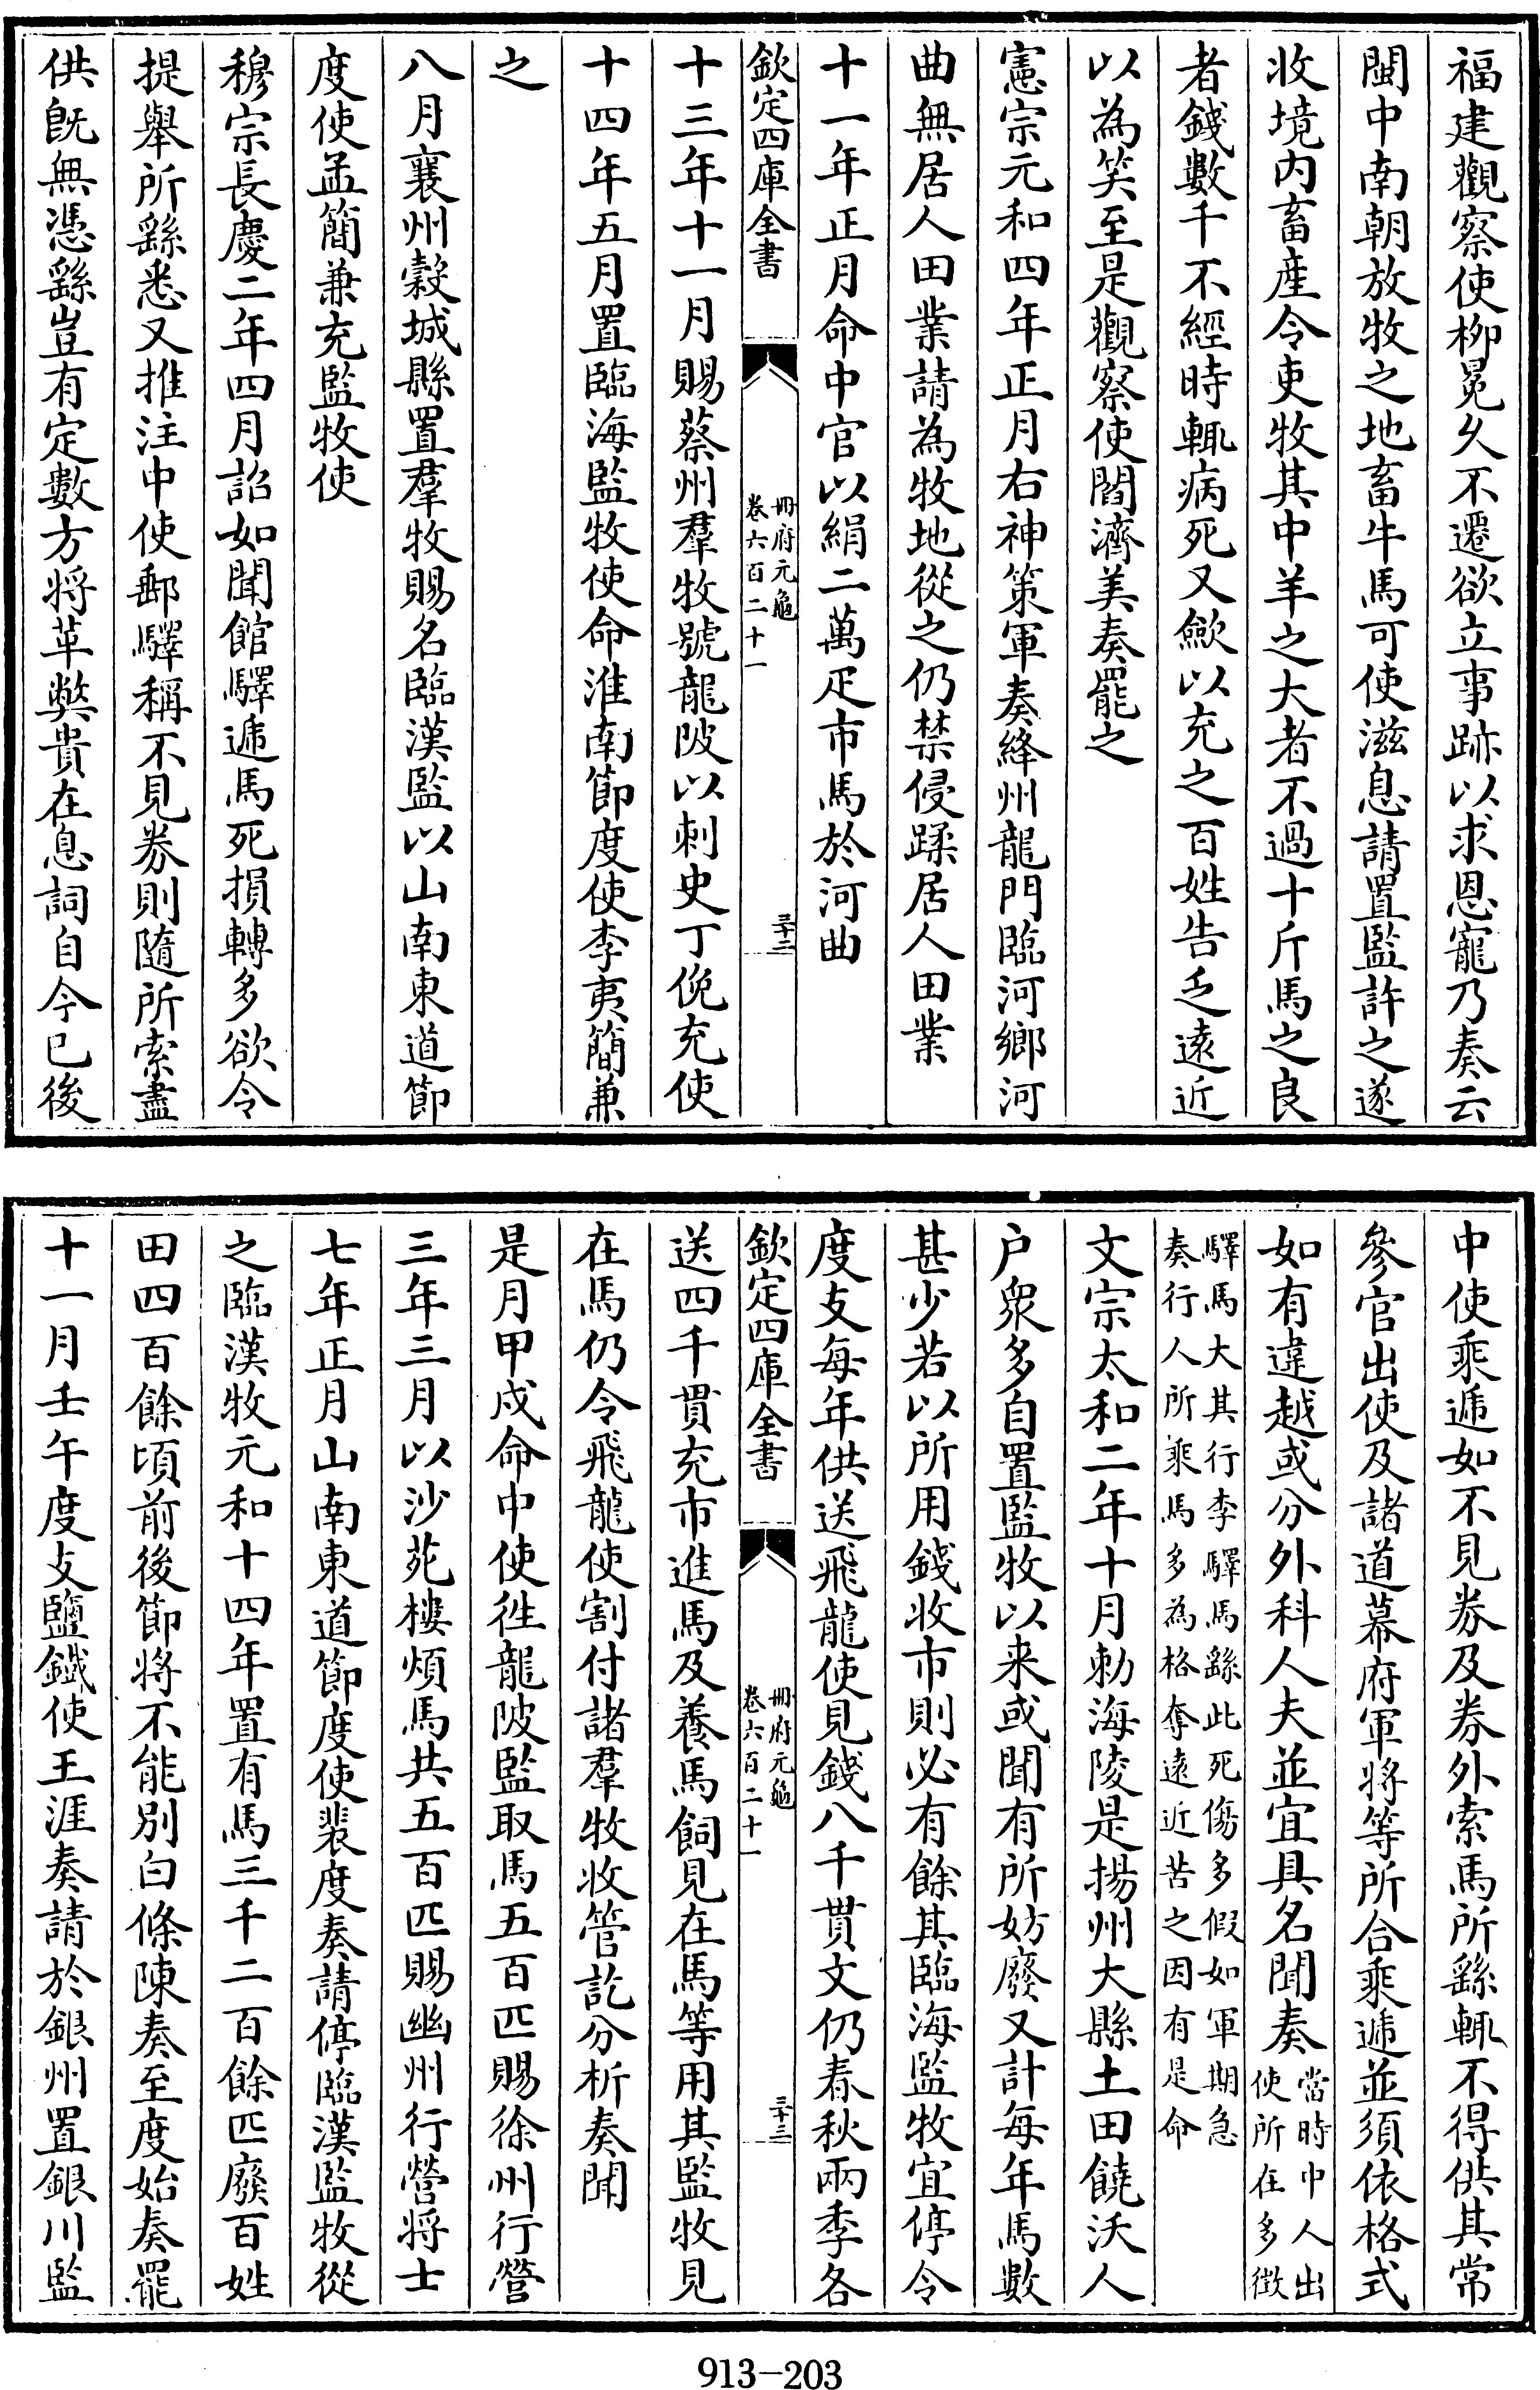 福建觀察使柳冕久不遷欲立事跡以求恩寵乃奏云
閩中南朝放牧之地畜牛馬可使滋息請置監許之遂
收境内畜産令吏牧其中羊之大者不過十斤馬之良
者錢數千不經時輒病死又歛以充之百姓告乏遠近
以為笑至是觀察使閻濟美奏罷之
憲宗元和四年正月右神策軍奏絳州龍門臨河鄉河
曲無居人田業請為牧地從之仍禁侵蹂居人田業
十一年正月命中官以絹二萬疋市馬於河曲
欽定四庫全書
冊府元龜
卷六百二十一
三十二
十三年十一月賜蔡州羣牧號龍陂以刺史丁俛充使
十四年五月置臨海監牧使命淮南節度使李夷簡兼
之
八月襄州穀城縣置羣牧賜名臨漢監以山南東道節
度使孟簡兼充監牧使
穆宗長慶二年四月詔如聞館驛遞馬死損轉多欲令
提舉所繇悉又推注中使郵驛稱不見券則隨所索盡
供既無憑繇豈有定數方将革弊貴在息詞自今已後
中使乘遞如不見券及券外索馬所繇輒不得供其常
參官出使及諸道幕府軍将等所合乘遞並須依格式
如有違越或分外科人夫並宜具名聞奏當時中人出
使所在多徵
驛馬大其行李驛馬繇此死傷多假如軍期急
奏行人所乘馬多為格奪遠近苦之因有是命
文宗太和二年十月勅海陵是揚州大縣土田饒沃人
户衆多自置監牧以来或聞有所妨廢又計每年馬數
甚少若以所用錢收市則必有餘其臨海監牧宜停令
度支每年供送飛龍使見錢八千貫文仍春秋兩季各
欽定四庫全書
冊府元龜
卷六百二十一
三十三
送四千貫充市進馬及養馬飼見在馬等用其監牧見
在馬仍令飛龍使割付諸羣牧收管訖分析奏聞
是月甲戌命中使徃龍陂監取馬五百匹賜徐州行營
三年三月以沙苑樓煩馬共五百匹賜幽州行營将士
七年正月山南東道節度使裴度奏請停臨漢監牧從
之臨漢牧元和十四年置有馬三千二百餘匹廢百姓
田四百餘頃前後節将不能别白條陳奏至度始奏罷
十一月壬午度支鹽鐵使王涯奏請於銀州置銀川監
913-203